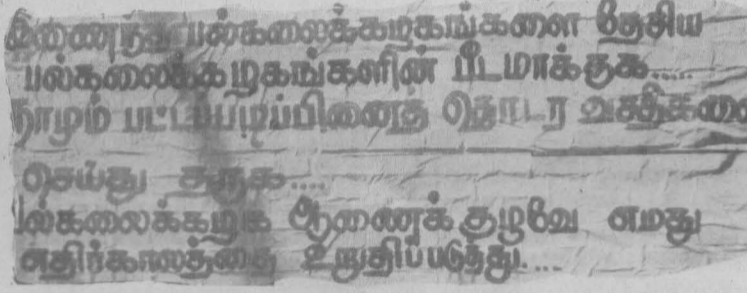 இணைந்த பல்கலைக்கழகங்களை தேசிய
பல்கலைக்கழகங்களின் பீடமாக்குக.....
நாமும் பட்டப்படிப்பினைத் தொடர வசதிகளை
செய்து தருக....
பல்கலைக்கழக ஆணைக்குழுவே எமது
எதிர்காலத்தை உறுதிப்படுத்து....